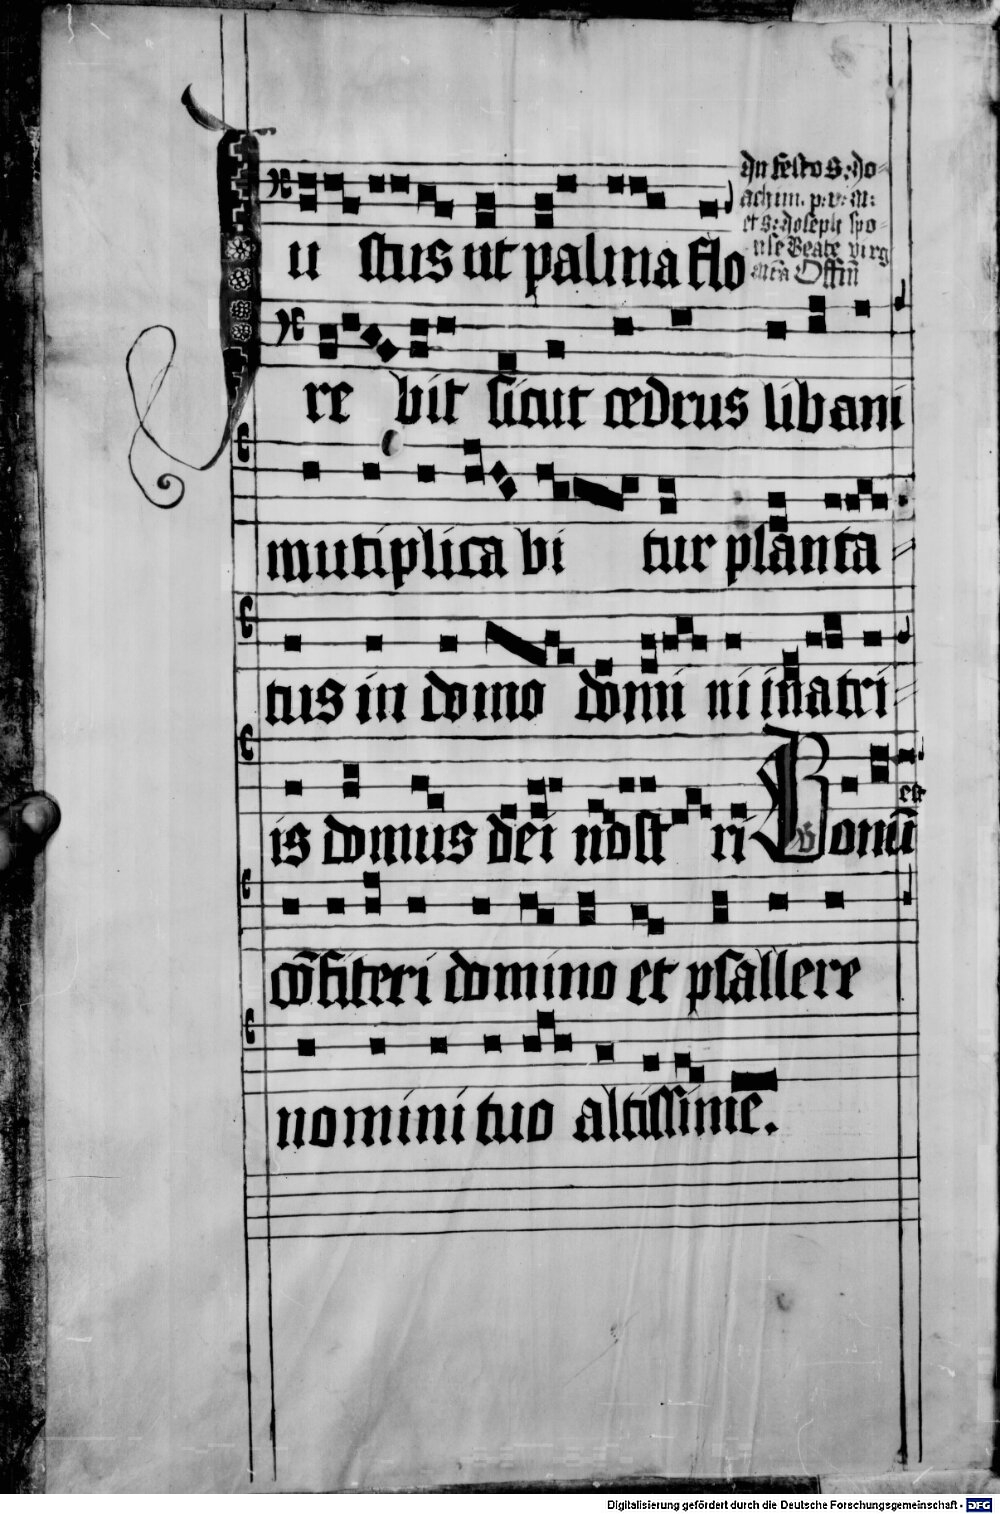 In festo S: Jo-
achim. p: v: M:
et S: Joseph spo-
nse Beate virg
Offm̄
Iu stus ut palma flo
re bit sicut cedrus libani
mutiplica bi tur planta
tus in domo domi ni in atri
is domus dei nost ri Bonū
est
cōfiteri domino et psallere
nomini tuo altissime.
Digitalisierung gefördert durch die Deutsche Forschungsgemeinschaft - DFG